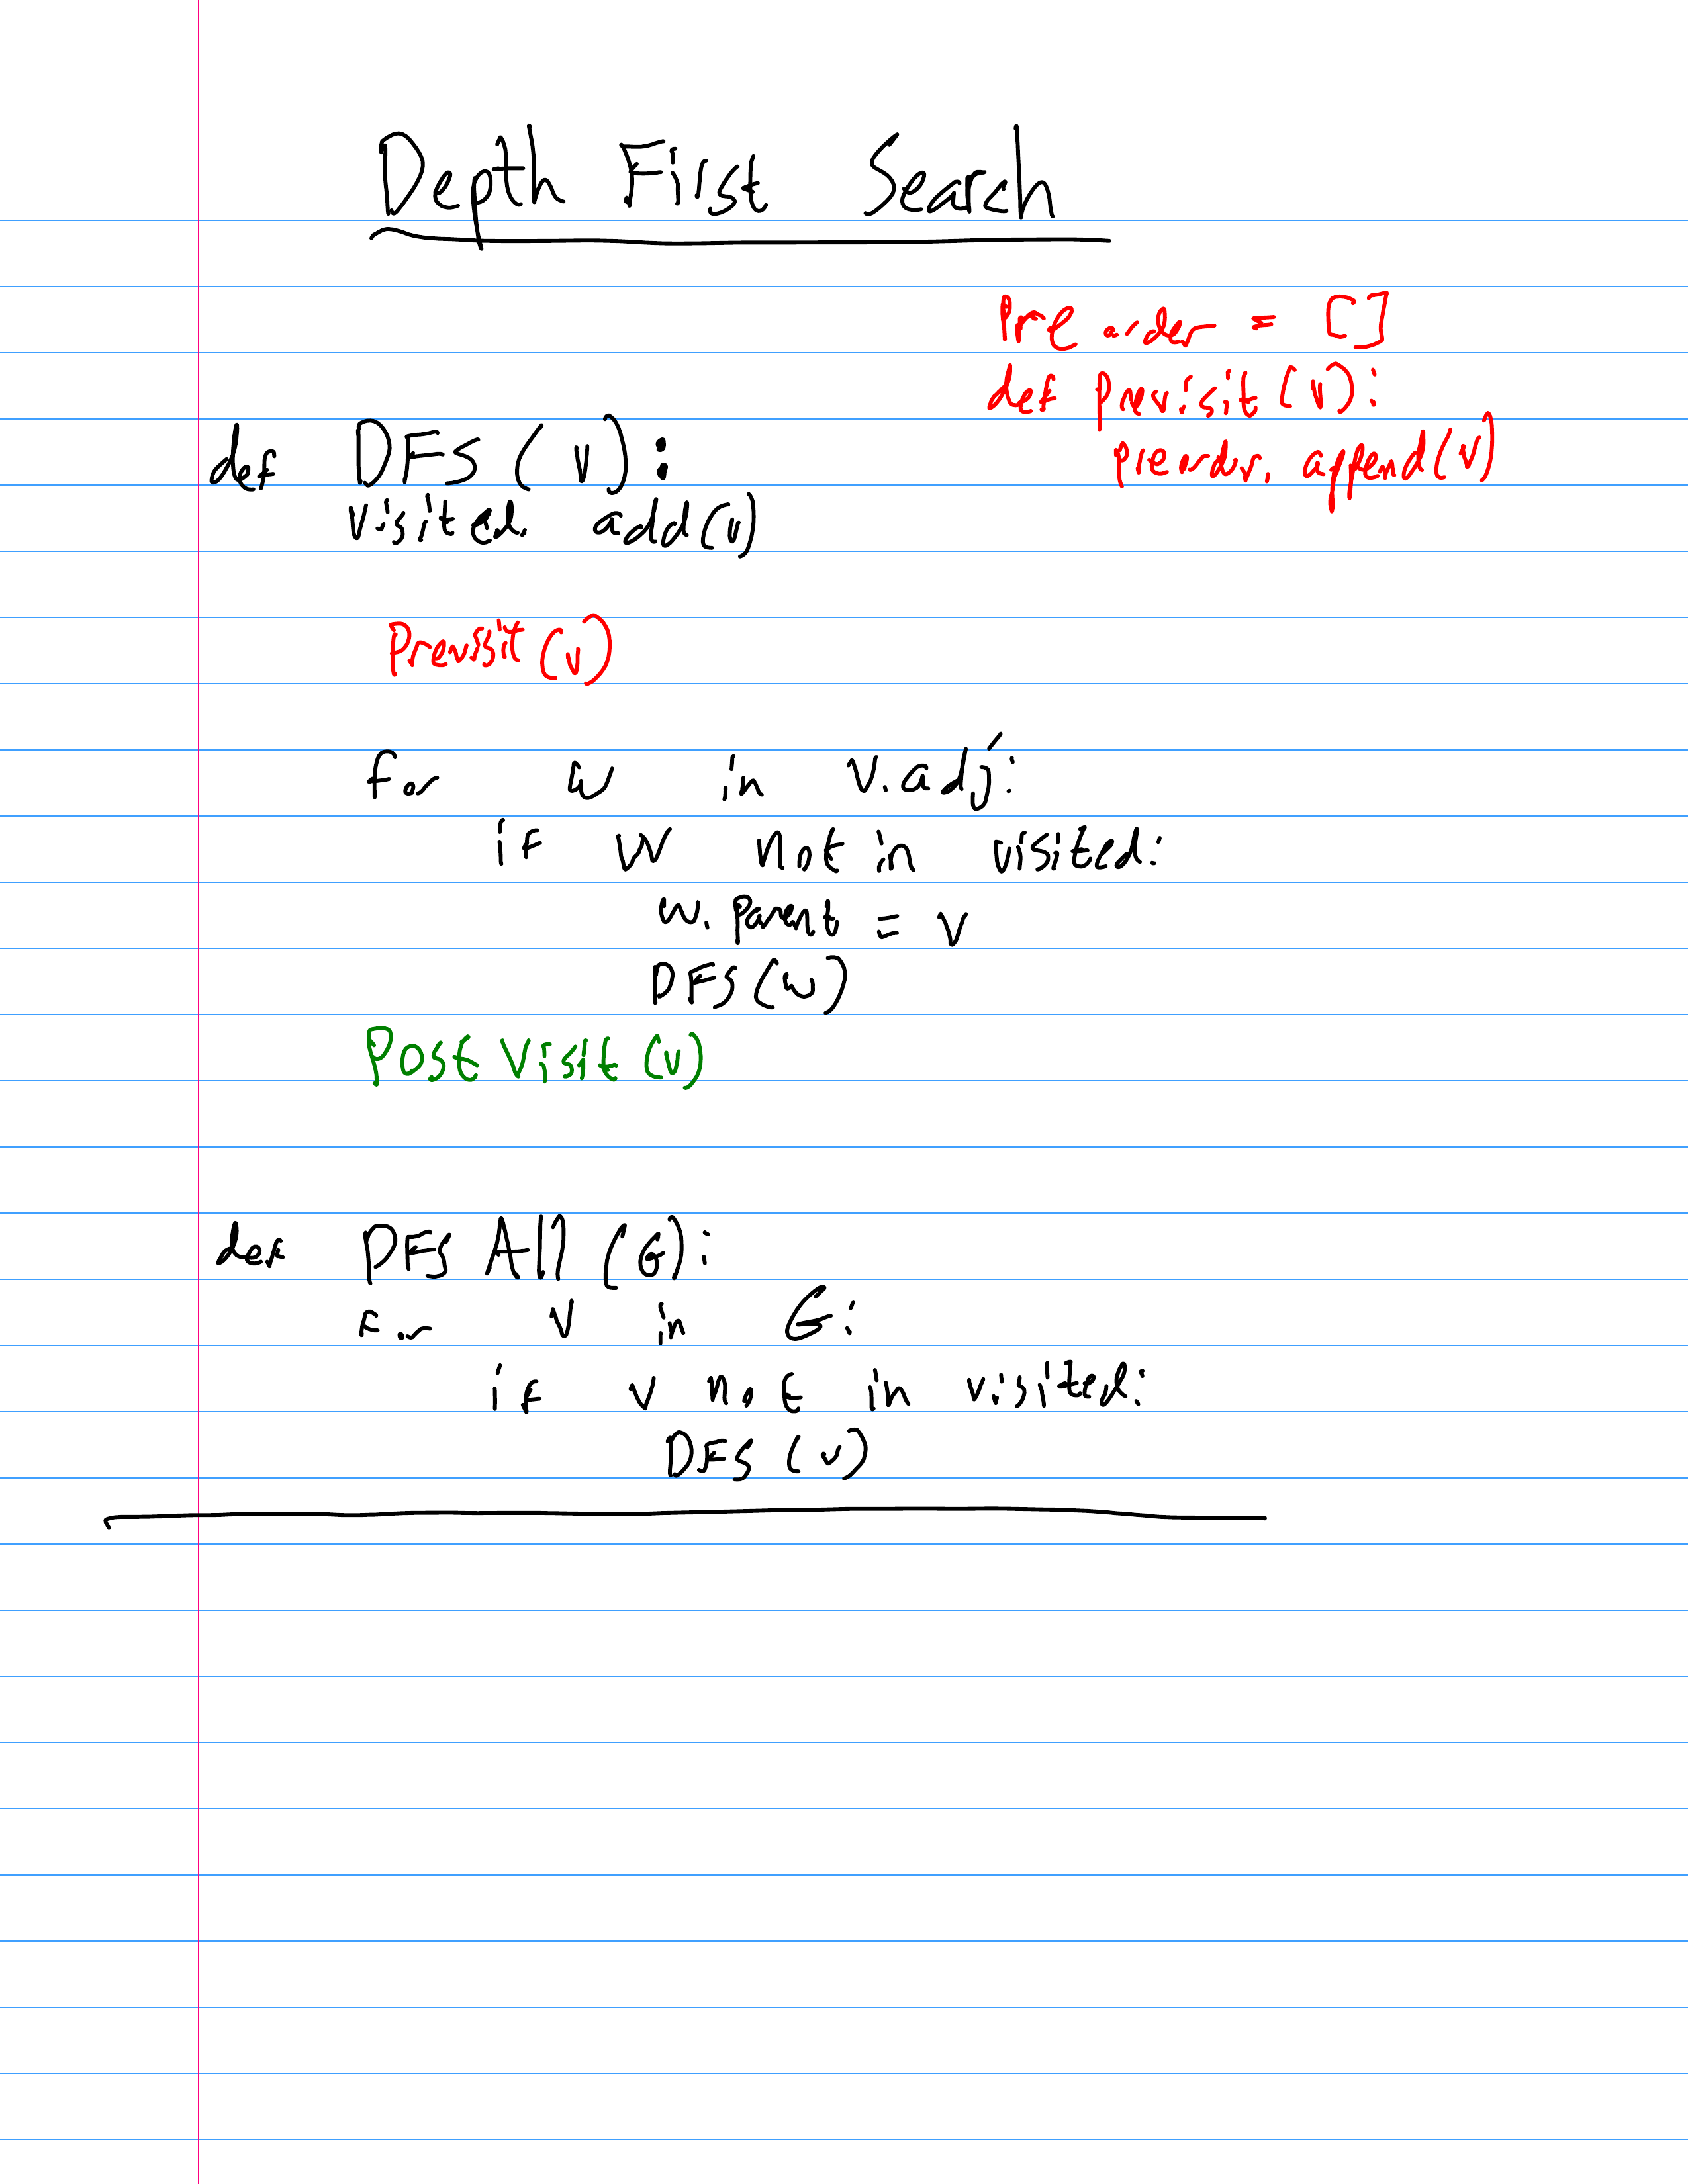 Depth First Search
Preorder = []
def previsit(v):
preordr. append(v)
def DFS(v):
visited. add(v)
Previsit(v)
for w in v.adj:
if w not in visited:
w. parent = v
DFS(w)
Post Visit(v)
def DFS All (G):
for v in G:
if v not in visited:
DFS(v)